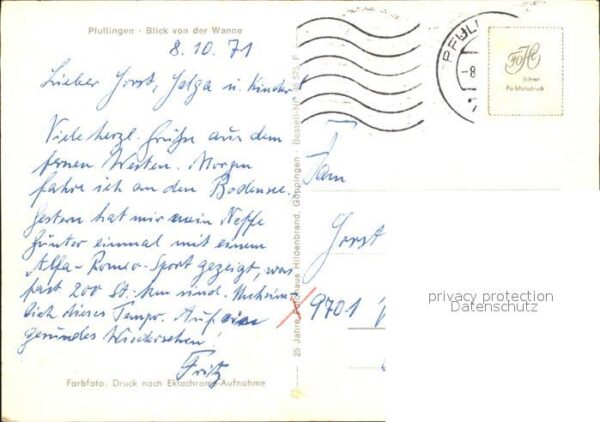 Pfullingen - Blick von der Wanne
8.10.71
Lieber Horst, Helga u. Kinder
Viele herzl. Grüße aus dem
fernen Westen. Morgen
fahre ich an den Bodensee.
Gestern hat mir mein Neffe
Günter einmal mit einem
Alfa-Romeo-Sport gezeigt, was
fast 200 St. km sind. Unheim-
lich dieses Tempo. Auf ein
gesundes Wiedersehen!
Fritz
Farbfoto: Druck nach Ektachrome-Aufnahme
25 Jahre Fotohaus Hildenbrand, Göppingen - Bestell-Nr.
PFULL
-8
FoHi
Echter
Farbfotodruck
Fam
Horst
9701
privacy protection
Datenschutz